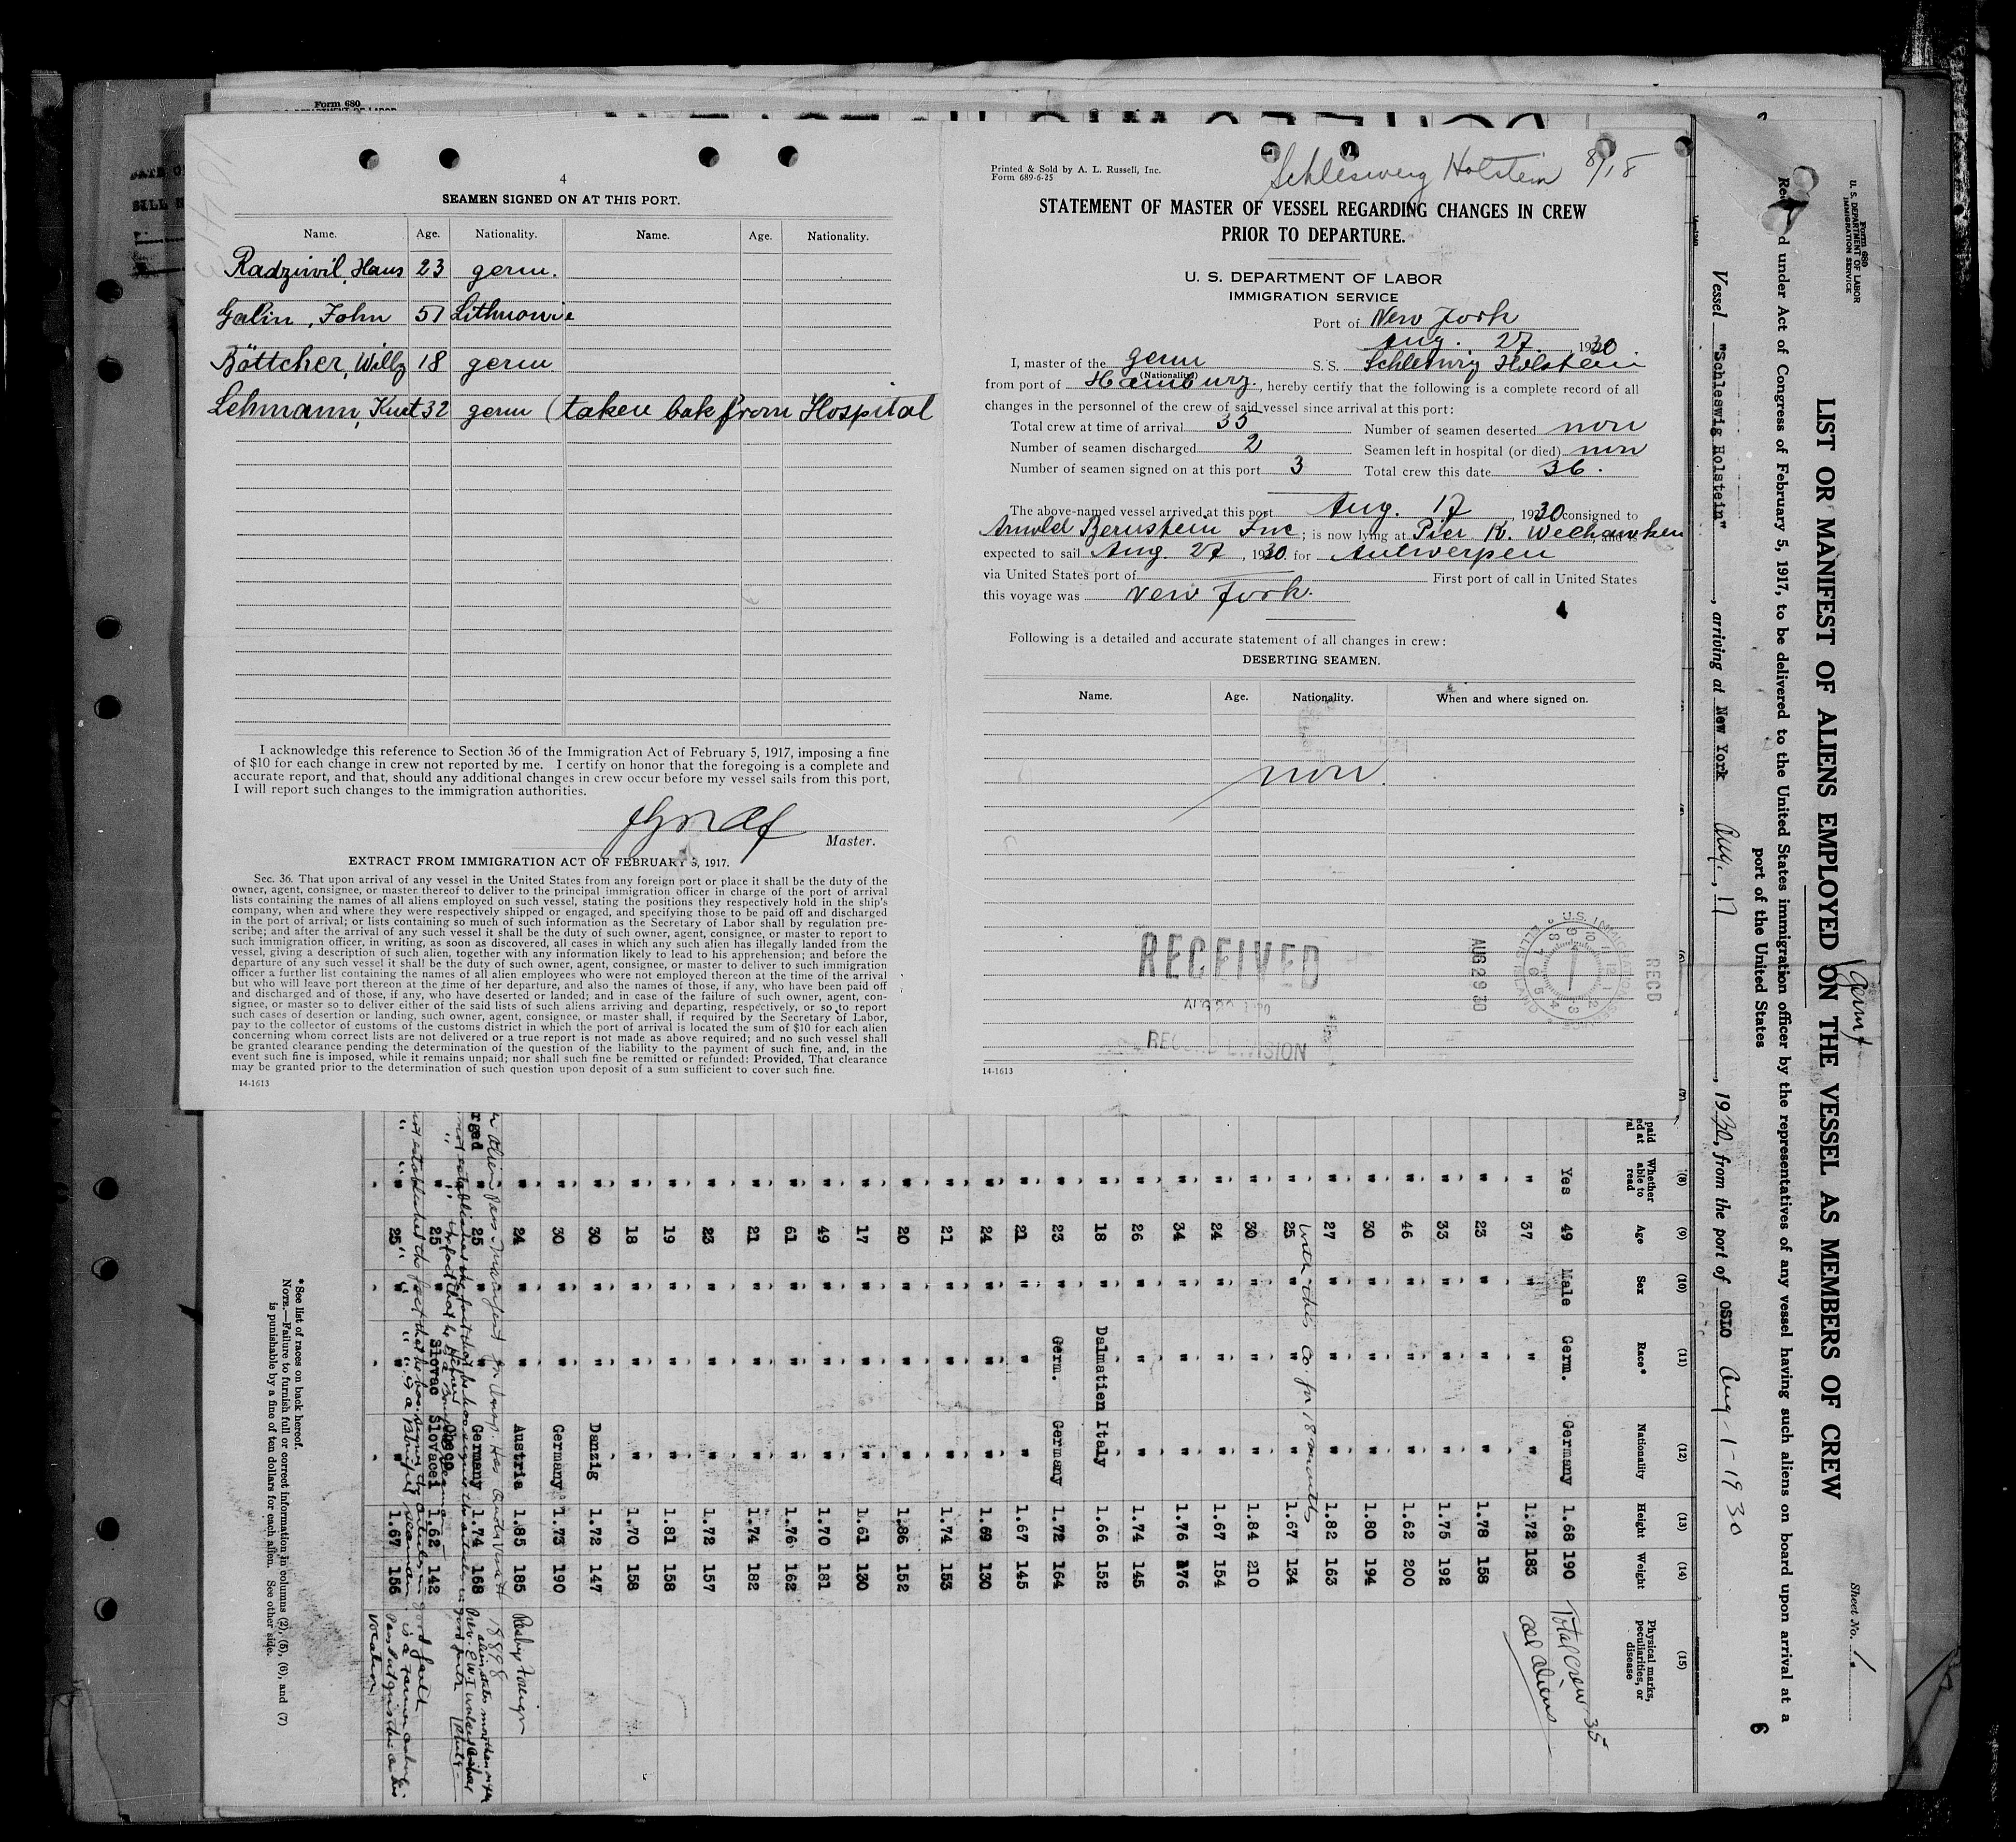 Form 680
4
SEAMEN SIGNED ON AT THIS PORT.
Name. Age. Nationality. Name. Age. Nationality.
Radziwil, Hans 23 germ.
Galin, John 51 Lithuonie
Böttcher, Willy 18 germ
Lehmann, Kurt 32 germ (taken bak from Hospital
I acknowledge this reference to Section 36 of the Immigration Act of February 5, 1917, imposing a fine
of $10 for each change in crew not reported by me. I certify on honor that the foregoing is a complete and
accurate report, and that, should any additional changes in crew occur before my vessel sails from this port,
I will report such changes to the immigration authorities.
Master.
EXTRACT FROM IMMIGRATION ACT OF FEBRUARY 5, 1917.
Sec. 36. That upon arrival of any vessel in the United States from any foreign port or place it shall be the duty of the
owner, agent, consignee, or master thereof to deliver to the principal immigration officer in charge of the port of arrival
lists containing the names of all aliens employed on such vessel, stating the positions they respectively hold in the ship's
company, when and where they were respectively shipped or engaged, and specifying those to be paid off and discharged
in the port of arrival; or lists containing so much of such information as the Secretary of Labor shall by regulation pre-
scribe; and after the arrival of any such vessel it shall be the duty of such owner, agent, consignee, or master to report to
such immigration officer, in writing, as soon as discovered, all cases in which any such alien has illegally landed from the
vessel, giving a description of such alien, together with any information likely to lead to his apprehension; and before the
departure of any such vessel it shall be the duty of such owner, agent, consignee, or master to deliver to such immigration
officer a further list containing the names of all alien employees who were not employed thereon at the time of the arrival
but who will leave port thereon at the time of her departure, and also the names of those, if any, who have been paid off
and discharged and of those, if any, who have deserted or landed; and in case of the failure of such owner, agent, con-
signee, or master so to deliver either of the said lists of such aliens arriving and departing, respectively, or so to report
such cases of desertion or landing, such owner, agent, consignee, or master shall, if required by the Secretary of Labor,
pay to the collector of customs of the customs district in which the port of arrival is located the sum of $10 for each alien
concerning whom correct lists are not delivered or a true report is not made as above required; and no such vessel shall
be granted clearance pending the determination of the question of the liability to the payment of such fine, and, in the
event such fine is imposed, while it remains unpaid; nor shall such fine be remitted or refunded: Provided, That clearance
may be granted prior to the determination of such question upon deposit of a sum sufficient to cover such fine.
14-1613
Printed & Sold by A. L. Russell, Inc.
Form 689-6-25
Schleswig Holstein 8/18
STATEMENT OF MASTER OF VESSEL REGARDING CHANGES IN CREW
PRIOR TO DEPARTURE.
U. S. DEPARTMENT OF LABOR
IMMIGRATION SERVICE
Port of New York
Aug. 27. 1930
I, master of the germ S. S. Schleswig Holstein
(Nationality)
from port of Hamburg., hereby certify that the following is a complete record of all
changes in the personnel of the crew of said vessel since arrival at this port:
Total crew at time of arrival 35 Number of seamen deserted non
Number of seamen discharged 2 Seamen left in hospital (or died) non
Number of seamen signed on at this port 3 Total crew this date 36.
The above-named vessel arrived at this port Aug. 17, 1930 consigned to
Arnold Bernstein Inc; is now lying at Pier K. Weehawken, and is
expected to sail Aug 27, 1930 for Antwerpen
via United States port of First port of call in United States
this voyage was New York.
Following is a detailed and accurate statement of all changes in crew:
DESERTING SEAMEN.
Name. Age. Nationality. When and where signed on.
non
RECEIVED
RECORD DIVISION
AUG 29 30
RECD
14-1613
Form 680
U. S. DEPARTMENT OF LABOR
IMMIGRATION SERVICE
Sheet No. 1.
LIST OR MANIFEST OF ALIENS EMPLOYED ON THE VESSEL AS MEMBERS OF CREW
Germ
d under Act of Congress of February 5, 1917, to be delivered to the United States immigration officer by the representatives of any vessel having such aliens on board upon arrival at a
port of the United States
6
Vessel "Schleswig Holstein", arriving at New York Aug., 17, 1930, from the port of OSLO Aug-1-1930
(8) (9) (10) (11) (12) (13) (14) (15)
Whether able to read Age Sex Race* Nationality Height Weight Physical marks, peculiarities, or disease
Yes 49 Male Germ. Germany 1.68 190 Total Crew 35
" 37 " " " 1.72 183 all aliens
" 23 " " " 1.78 158
" 33 " " " 1.75 192
" 46 " " " 1.62 200
" 30 " " " 1.80 194
" 27 " " " 1.82 163
with this Co. for 18 months
" 25 " " " 1.67 134
" 30 " " " 1.84 210
" 24 " " " 1.67 154
" 34 " " " 1.76 176
" 26 " " " 1.74 145
" 18 " Dalmatien Italy 1.66 152
" 23 " Germ. Germany 1.72 164
" 21 " " " 1.67 145
" 24 " " " 1.69 130
" 21 " " " 1.74 153
" 20 " " " 1.86 152
" 17 " " " 1.61 130
" 49 " " " 1.70 181
" 61 " " " 1.76 162
" 21 " " " 1.74 182
" 23 " " " 1.72 157
" 19 " " " 1.81 158
" 18 " " " 1.70 158
" 30 " " Danzig 1.72 147
" 30 " " Germany 1.73 190
" 24 " " Austria 1.85 185
" 25 " " Germany 1.74 168
" 25 " Slovac Slovacei 1.62 142
" 25 " " " 1.67 156
*See list of races on back hereof.
NOTE.—Failure to furnish full or correct information in columns (2), (5), (6), and (7)
is punishable by a fine of ten dollars for each alien. See other side.